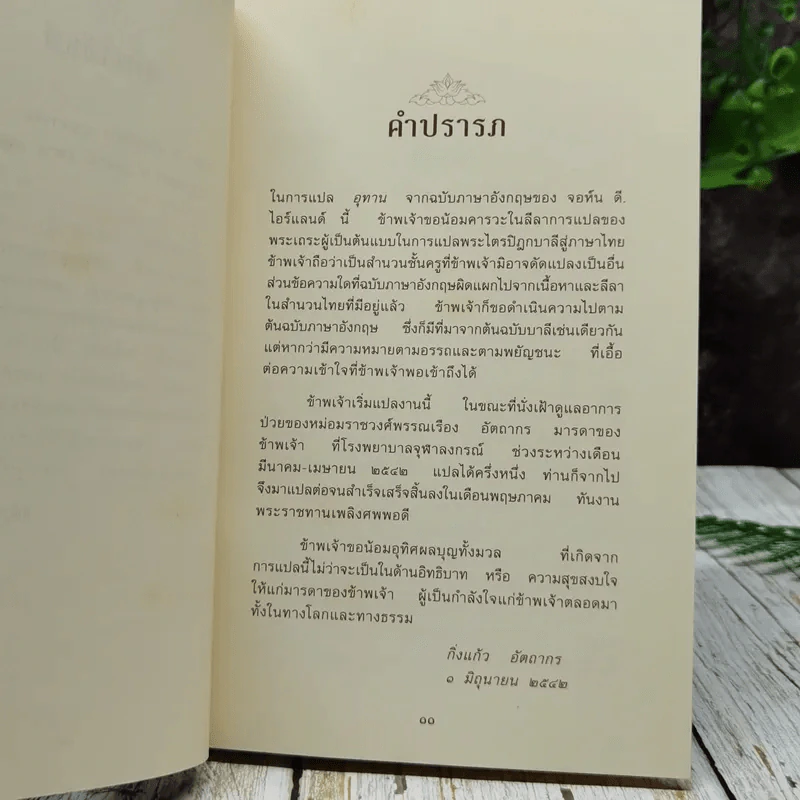 คำปรารภ
ในการแปล อุทาน จากฉบับภาษาอังกฤษของ จอห์น ดี.
ไอร์แลนด์ นี้ ข้าพเจ้าขอน้อมคารวะในลีลาการแปลของ
พระเถระผู้เป็นต้นแบบในการแปลพระไตรปิฎกบาลีสู่ภาษาไทย
ข้าพเจ้าถือว่าเป็นสำนวนชั้นครูที่ข้าพเจ้ามิอาจดัดแปลงเป็นอื่น
ส่วนข้อความใดที่ฉบับภาษาอังกฤษผิดแผกไปจากเนื้อหาและลีลา
ในสำนวนไทยที่มีอยู่แล้ว ข้าพเจ้าก็ขอดำเนินความไปตาม
ต้นฉบับภาษาอังกฤษ ซึ่งก็มีที่มาจากต้นฉบับบาลีเช่นเดียวกัน
แต่หากว่ามีความหมายตามอรรถและตามพยัญชนะ ที่เอื้อ
ต่อความเข้าใจที่ข้าพเจ้าพอเข้าถึงได้
ข้าพเจ้าเริ่มแปลงานนี้ ในขณะที่นั่งเฝ้าดูแลอาการ
ป่วยของหม่อมราชวงศ์พรรณเรือง อัตถากร มารดาของ
ข้าพเจ้า ที่โรงพยาบาลจุฬาลงกรณ์ ช่วงระหว่างเดือน
มีนาคม-เมษายน ๒๕๔๒ แปลได้ครึ่งหนึ่ง ท่านก็จากไป
จึงมาแปลต่อจนสำเร็จเสร็จสิ้นลงในเดือนพฤษภาคม ทันงาน
พระราชทานเพลิงศพพอดี
ข้าพเจ้าขอน้อมอุทิศผลบุญทั้งมวล ที่เกิดจาก
การแปลนี้ไม่ว่าจะเป็นในด้านอิทธิบาท หรือ ความสุขสงบใจ
ให้แก่มารดาของข้าพเจ้า ผู้เป็นกำลังใจแก่ข้าพเจ้าตลอดมา
ทั้งในทางโลกและทางธรรม
กิ่งแก้ว อัตถากร
๑ มิถุนายน ๒๕๔๒
๑๑